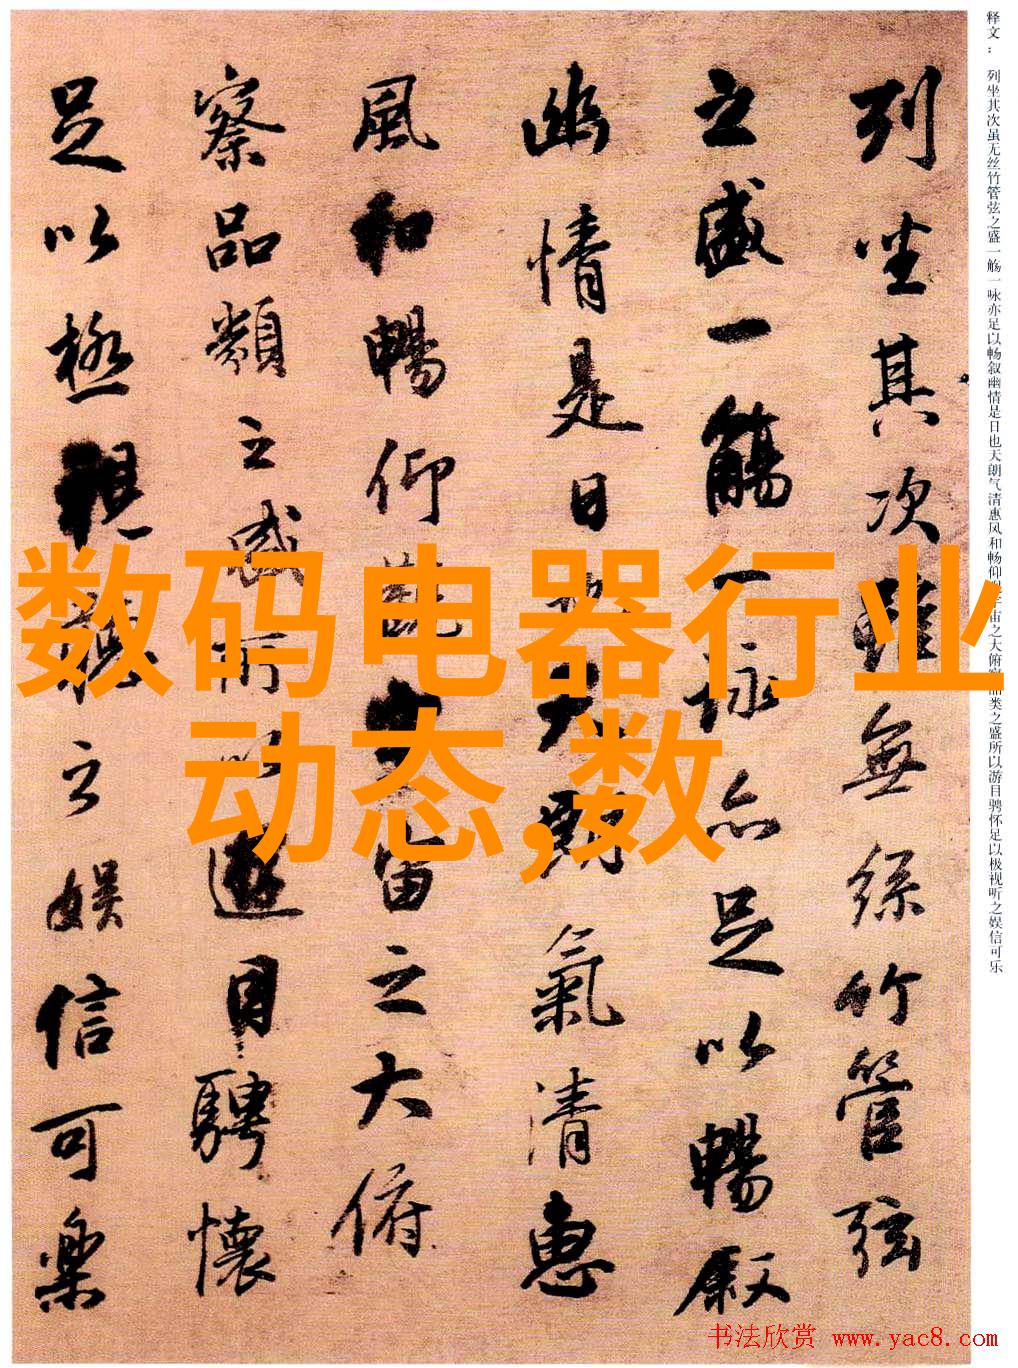 释文： 列坐其次虽无丝竹管弦之盛一觞一咏亦足以畅叙幽情是日也天朗气清惠风和畅仰观宇宙之大俯察品类之盛所以游目骋怀足以极视听之娱信可乐
列坐其次雖無絲竹管弦
之盛一觴一詠亦足以暢叙
幽情是日也天朗氣清惠
風和暢仰觀宇宙之大俯
察品類之盛所以遊目騁懷
足以極視聽之娱信可樂
数码电器行业
动态,数
书法欣赏 www.yac8.com